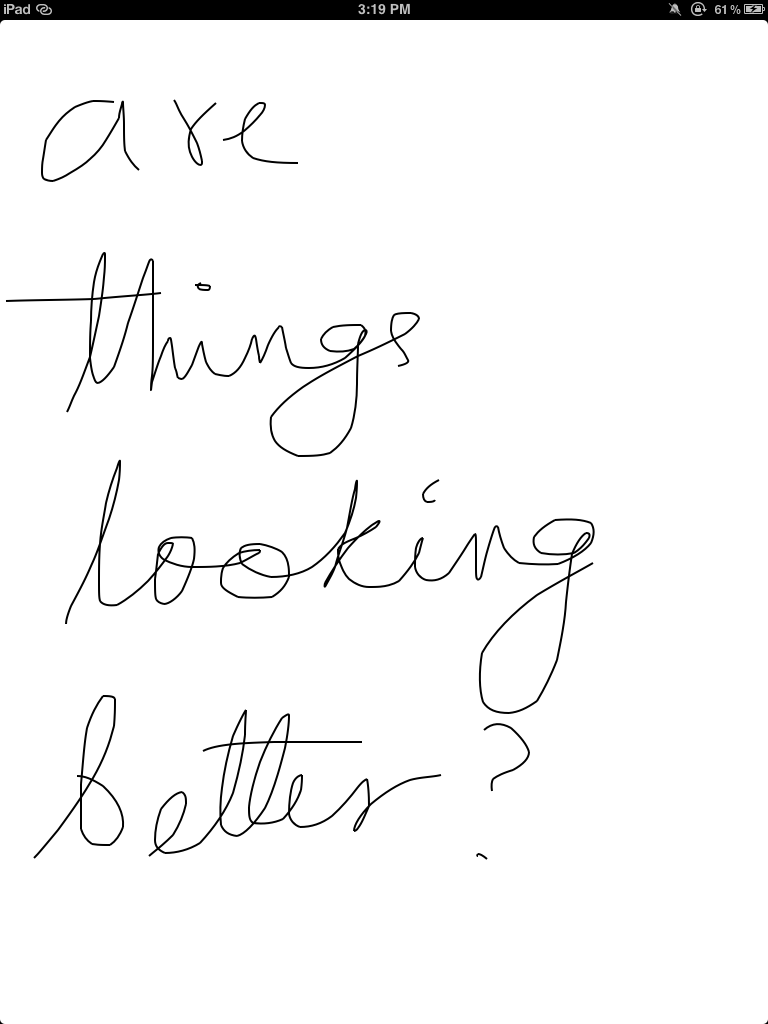 iPad 3:19 PM 61%
are
things
looking
better?